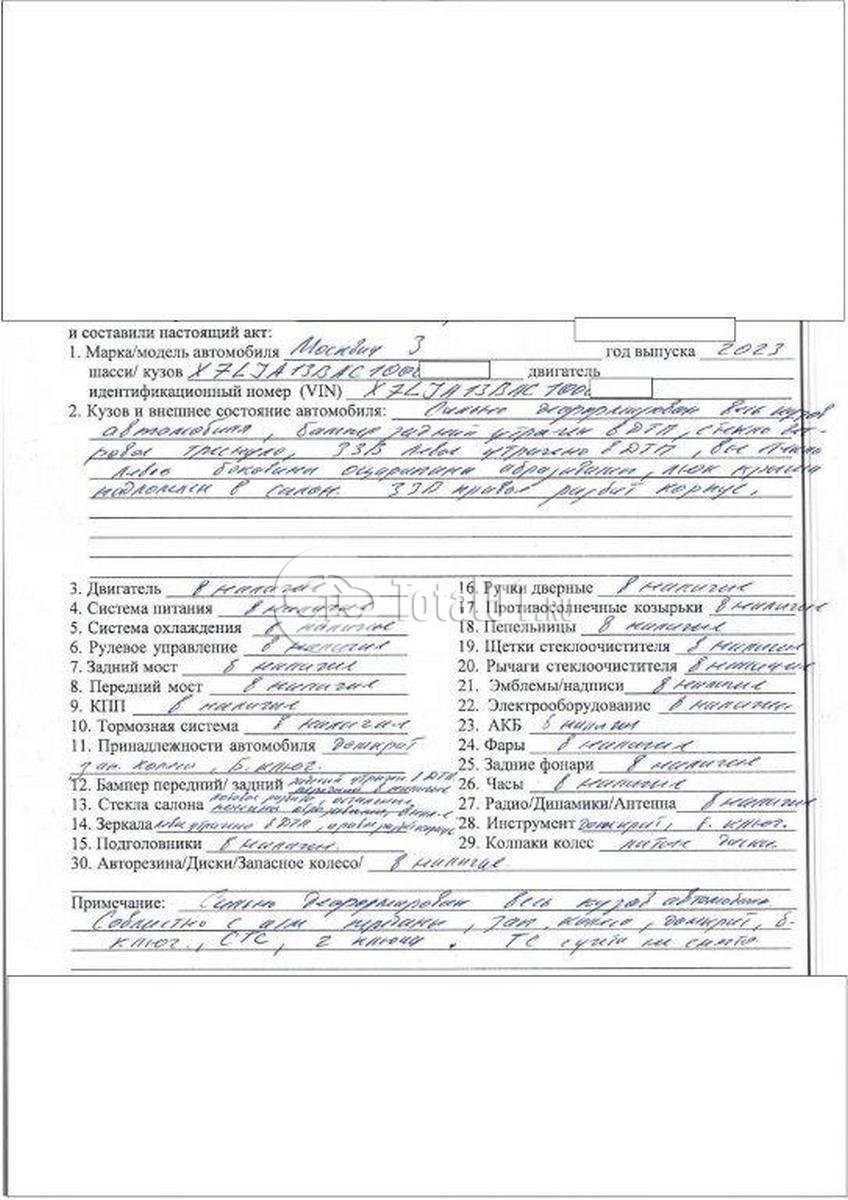 и составили настоящий акт:
1. Марка/модель автомобиля Москвич 3 год выпуска 2023
шасси/ кузов X7LJA13BAC100 двигатель
идентификационный номер (VIN) X7LJA13BAC100
2. Кузов и внешнее состояние автомобиля: Сильно деформирован весь кузов
автомобиля, бампер задний утрачен в ДТП, стекло
треснуло, ЗЗВ левое утрачено в ДТП, все
боковина оцарапана образивами, люк крыши
в салон. ЗЗВ правое разбит корпус.
3. Двигатель в наличие
4. Система питания в наличие
5. Система охлаждения в наличие
6. Рулевое управление в наличие
7. Задний мост в наличие
8. Передний мост в наличие
9. КПП в наличие
10. Тормозная система в наличие
11. Принадлежности автомобиля домкрат
зап. колесо, б. ключ.
12. Бампер передний/ задний задний утрачен в ДТП
передний в наличие
13. Стекла салона
14. Зеркала левое утрачено в ДТП, правое корпус
15. Подголовники в наличие
16. Ручки дверные в наличие
17. Противосолнечные козырьки в наличие
18. Пепельницы в наличие
19. Щетки стеклоочистителя в наличие
20. Рычаги стеклоочистителя в наличие
21. Эмблемы/надписи в наличие
22. Электрооборудование в наличие
23. АКБ в наличии
24. Фары в наличие
25. Задние фонари в наличие
26. Часы в наличие
27. Радио/Динамики/Антенна в наличие
28. Инструмент домкрат, б. ключ.
29. Колпаки колес литые диски.
30. Авторезина/Диски/Запасное колесо/ в наличие.
Примечание: Сильно деформирован весь кузов автомобиля.
Совместно с а/м переданы, зап. колесо, домкрат, б.
ключ., СТС, 2 ключа. ТС с учета не снято.
Total01.RU